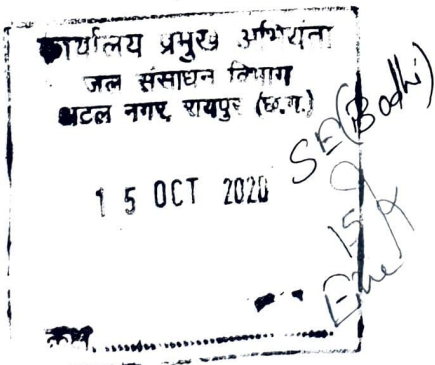 कार्यालय प्रमुख अभियंता
जल संसाधन विभाग
अटल नगर, रायपुर (छ.ग.)
15 OCT 2020
SE (Bodhi)
15